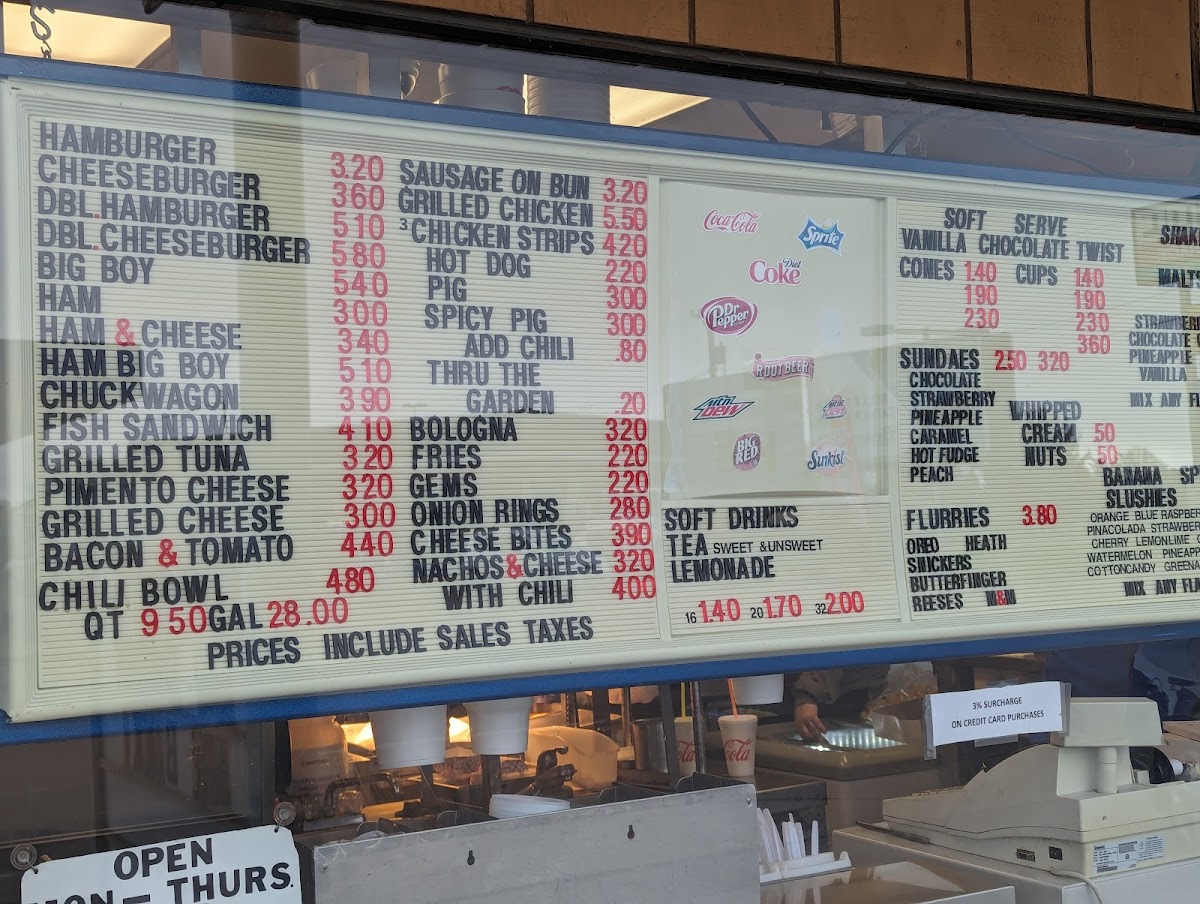 HAMBURGER 3.20
CHEESEBURGER 360
DBL.HAMBURGER 510
DBL.CHEESEBURGER 580
BIG BOY 540
HAM 300
HAM & CHEESE 340
HAM BIG BOY 510
CHUCKWAGON 390
FISH SANDWICH 410
GRILLED TUNA 320
PIMENTO CHEESE 320
GRILLED CHEESE 300
BACON & TOMATO 440
CHILI BOWL 480
QT 950 GAL 28.00
PRICES INCLUDE SALES TAXES
SAUSAGE ON BUN 3.20
GRILLED CHICKEN 5.50
3 CHICKEN STRIPS 420
HOT DOG 220
PIG 300
SPICY PIG 300
ADD CHILI .80
THRU THE
GARDEN .20
BOLOGNA 320
FRIES 220
GEMS 220
ONION RINGS 280
CHEESE BITES 390
NACHOS & CHEESE 320
WITH CHILI 400
Coca-Cola
Sprite
Diet Coke
Dr Pepper
ROOT BEER
Mtn DEW
BIG RED
Sunkist
SOFT DRINKS
TEA SWEET & UNSWEET
LEMONADE
16 1.40 20 1.70 32 2.00
SOFT SERVE
VANILLA CHOCOLATE TWIST
CONES 1.40 CUPS 140
190 190
230 230
360
SUNDAES 250 320
CHOCOLATE
STRAWBERRY
PINEAPPLE
CARAMEL
HOT FUDGE
PEACH
WHIPPED
CREAM 50
NUTS 50
FLURRIES 3.80
OREO HEATH
SNICKERS
BUTTERFINGER
REESES M&M
MALTS
CHOCOLATE
PINEAPPLE
VANILLA
MIX ANY
BANANA
SLUSHIES
ORANGE BLUE
PINACOLADA
CHERRY LEMONLIME
WATERMELON
COTTONCANDY
MIX ANY
3% SURCHARGE
ON CREDIT CARD PURCHASES
OPEN
MON-THURS.